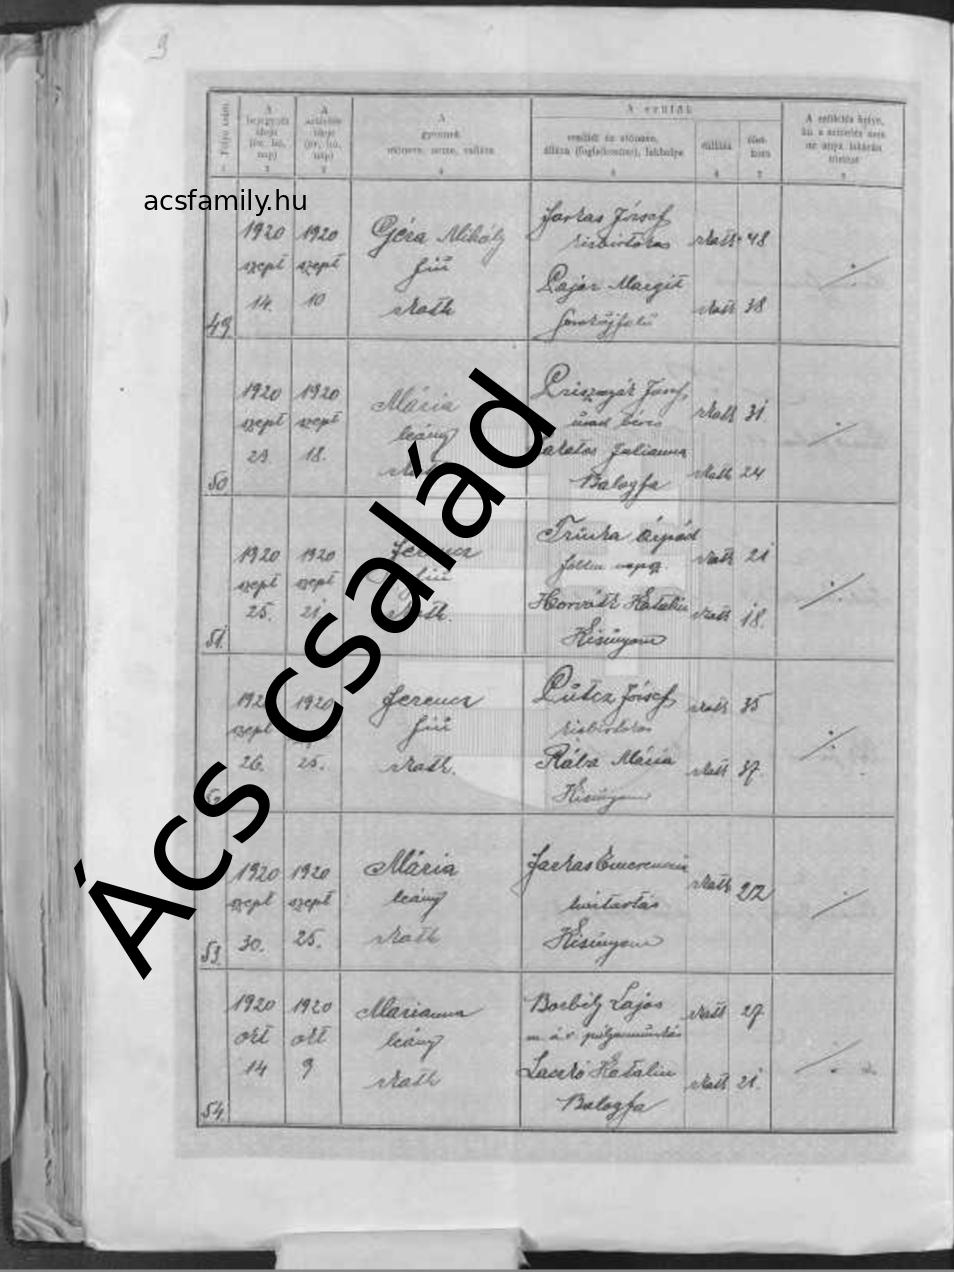 9
Folyó szám
A
bejegyzés
ideje
(év, hó,
nap)
A
születés
ideje
(év, hó,
nap)
A
gyermek
utóneve, neme, vallása
A szülők
családi és utóneve,
állása (foglalkozása), lakhelye
vallása
élet-
kora
A születés helye,
ha a születés nem
az anya lakásán
történt
1 2 3 4 5 6 7 8
acsfamily.hu
49.
1920
szept
14.
1920
szept
10
Géza Mihály
fiú
r. kath
Farkas József
kisbirtokos
Pajor Margit
r. kath 48
r. kath 38
50
1920
szept
23.
1920
szept
18.
Mária
leány
József
Julianna
Balogfa
r. kath 31
r. kath 24
51.
1920
szept
25.
1920
szept
21
Ferencz
fiú
Trinka Árpád
Horváth Katalin
Kisunyom
r. kath 21
r. kath 18.
szept
26.
1920
25.
Ferencz
fiú
r. kath.
József
kisbirtokos
Rába Mária
Kisunyom
r. kath 35
r. kath 37.
53.
1920
szept
30.
1920
szept
25.
Mária
leány
r. kath
Farkas Emerencia
háztartás
Kisunyom
r. kath 22
54.
1920
okt
14
1920
okt
9
Marianna
leány
r. kath
Borbély Lajos
m. á. v. pályamunkás
László Katalin
Balogfa
r. kath 27
r. kath 21.
Ács család